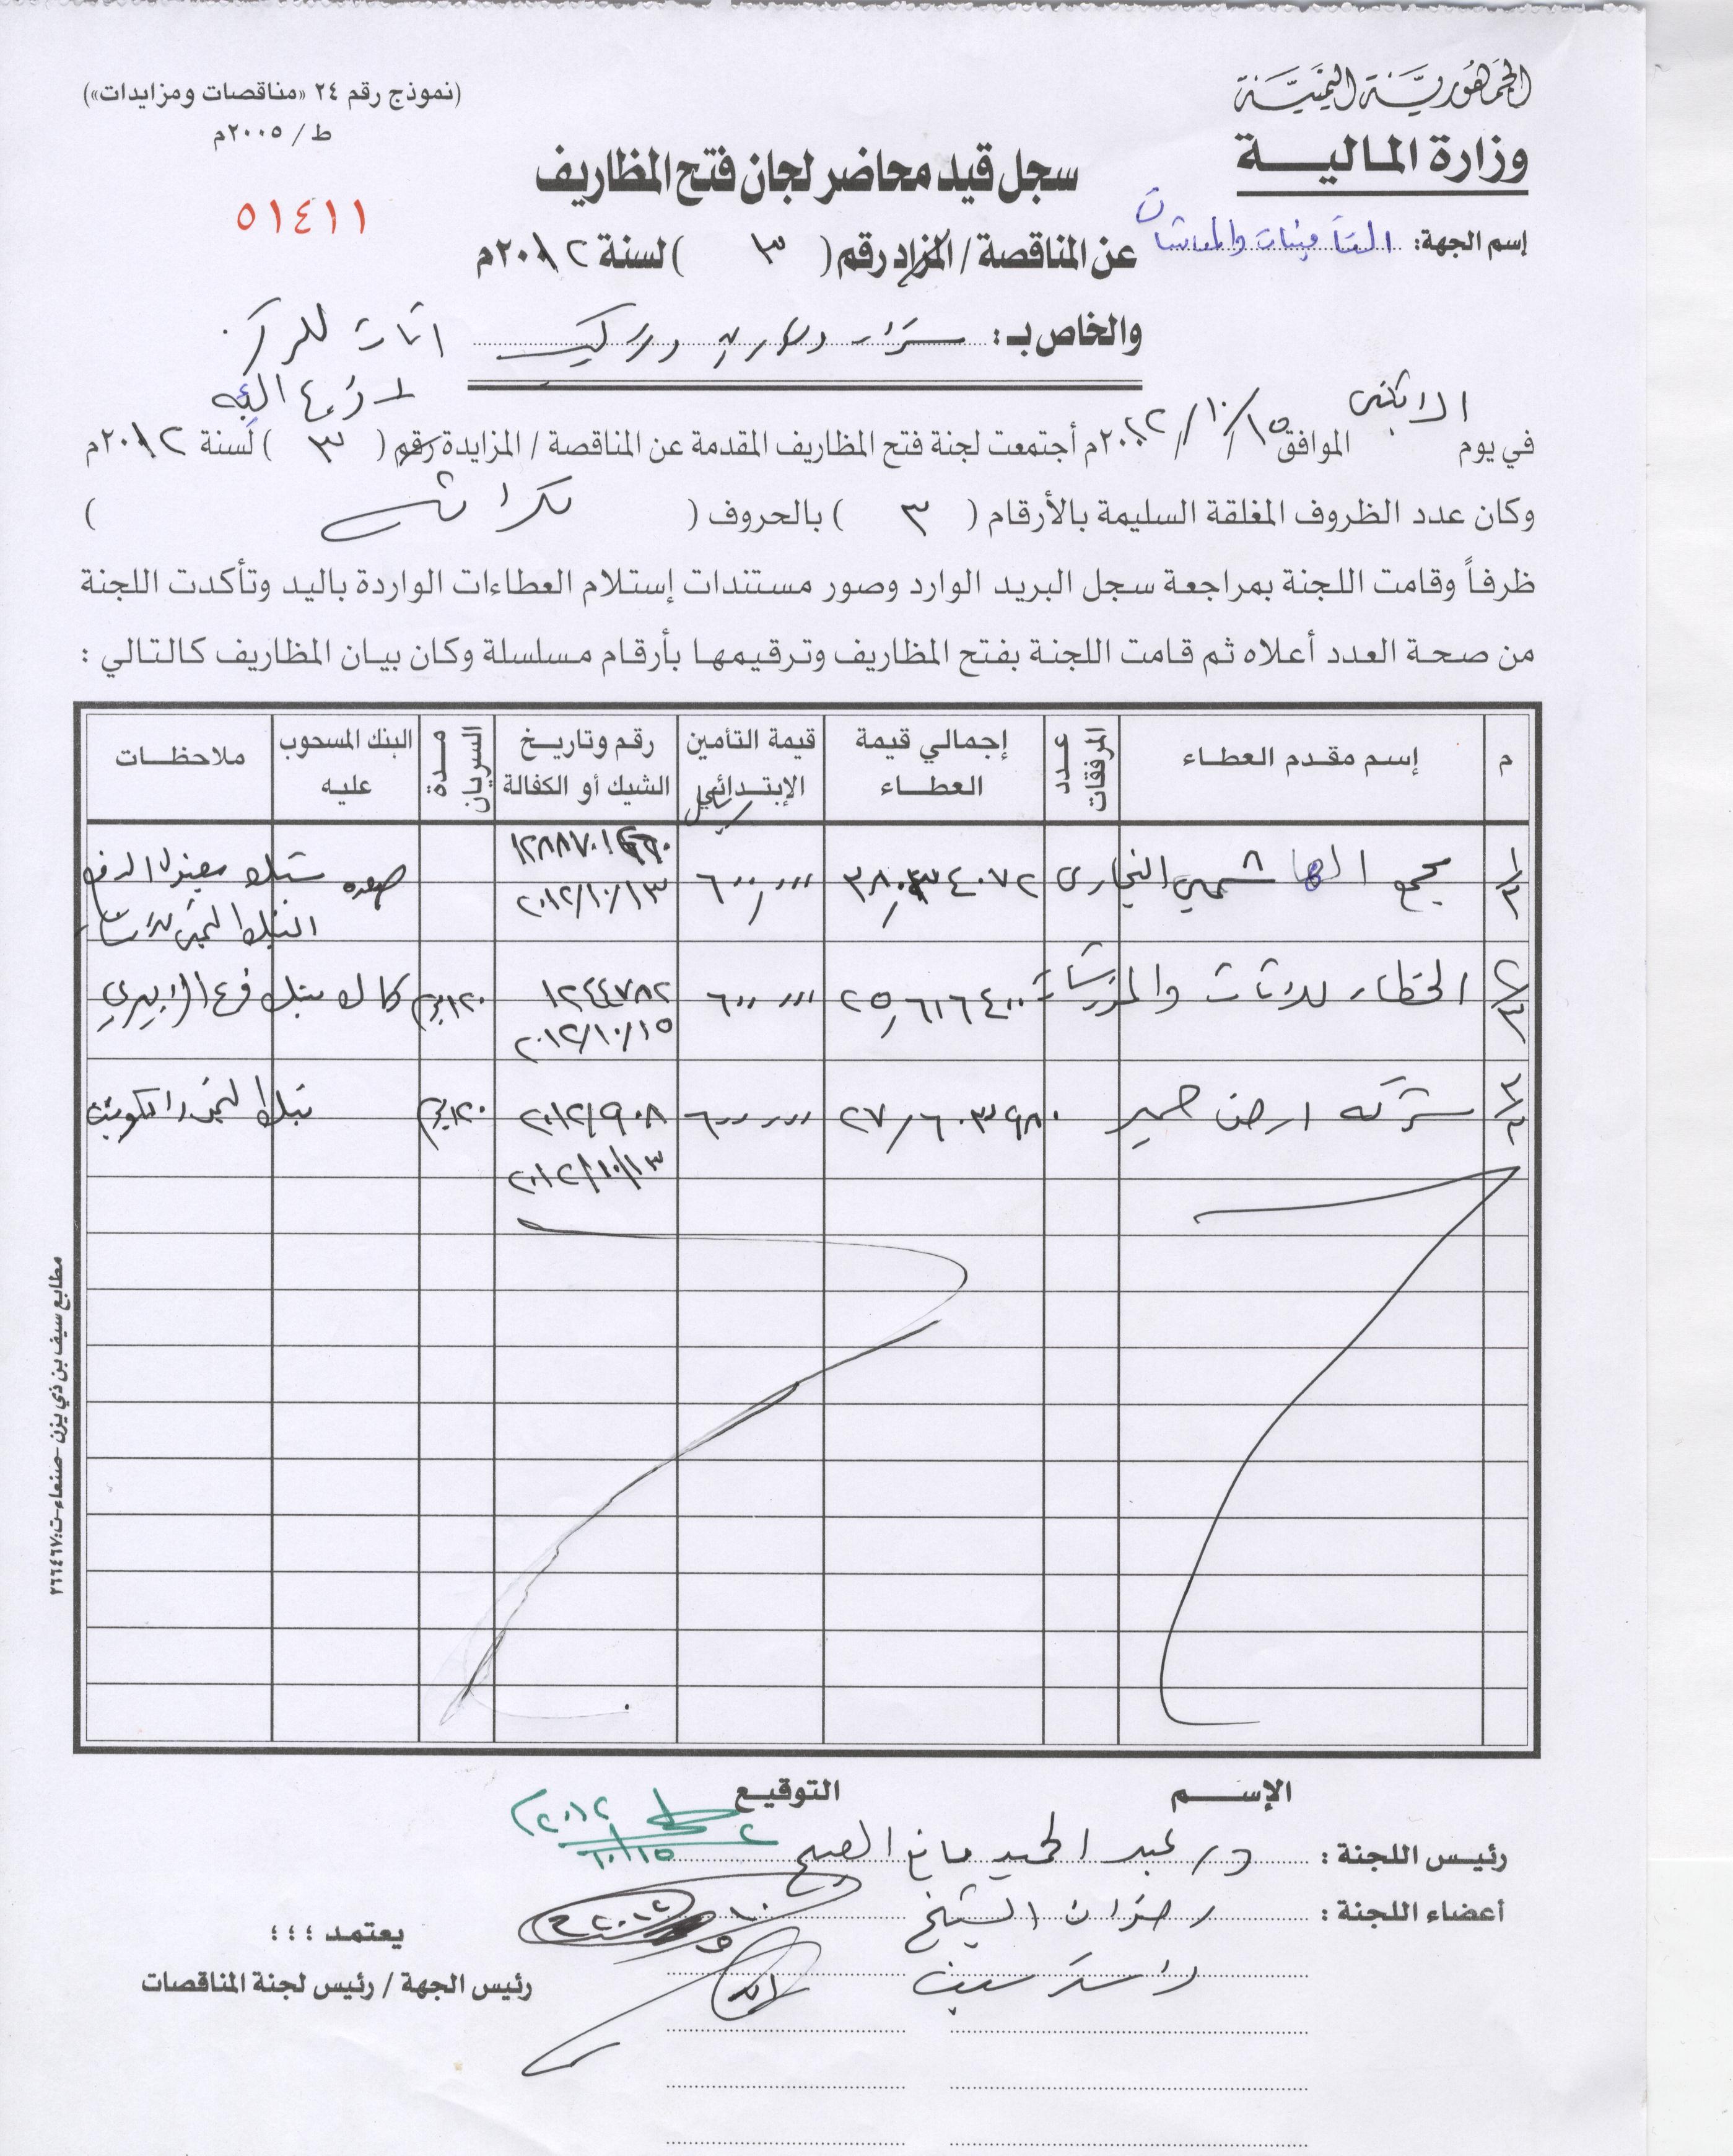 الجمهورية اليمنية
وزارة المالية
(نموذج رقم ٢٤ «مناقصات ومزايدات»)
ط / ٢٠٠٥م
٥١٤١١
سجل قيد محاضر لجان فتح المظاريف
إسم الجهة: التأمينات والمعاشات
عن المناقصة / المزاد رقم ( ٣ ) لسنة ٢٠١٢م
والخاص بـ: شراء وتوريد وتركيب اثاث للمركز
في يوم الاثنين الموافق ١٥/١٠/٢٠١٢م أجتمعت لجنة فتح المظاريف المقدمة عن المناقصة / المزايدة رقم ( ٣ ) لسنة ٢٠١٢م
وكان عدد الظروف المغلقة السليمة بالأرقام ( ٣ ) بالحروف ( )
ظرفاً وقامت اللجنة بمراجعة سجل البريد الوارد وصور مستندات إستلام العطاءات الواردة باليد وتأكدت اللجنة
من صحة العدد أعلاه ثم قامت اللجنة بفتح المظاريف وترقيمها بأرقام مسلسلة وكان بيان المظاريف كالتالي :
م إسم مقدم العطاء عدد المرفقات إجمالي قيمة العطاء قيمة التأمين الإبتدائي رقم وتاريخ الشيك أو الكفالة مدة السريان البنك المسحوب عليه ملاحظات
١/٣ مجمع الهاشمي التجاري ٦٠٠,٠٠٠ ٢٠١٢/١٠/١٣ شيك مقبول الدفع
٢/٣ الخطار للاثاث والمفروشات ٢٥,٦١٦٤٠٠ ٦٠٠٠٠٠ ١٢٤٤٧٨٢ ١٢٠ يوم كاك بنك فرع الزبيري
٢٠١٢/١٠/١٥
٣/٣ شركه ارض حمير ٦٠٠٠٠٠ ٢٠١٢/٩٠٨ ١٢٠ يوم بنك اليمن والكويت
٢٠١٢/١٠/١٣
الإســم التوقيع
رئيس اللجنة : د/ عبد الحميد مانع الصيح
٢٠١٢
١٠/١٥
أعضاء اللجنة : رضوان الشيخ
راشد سيف
يعتمد ؛؛؛
رئيس الجهة / رئيس لجنة المناقصات
مطابع سيف بن ذي يزن -صنعاء-ت:٢٦٦٤٦٧